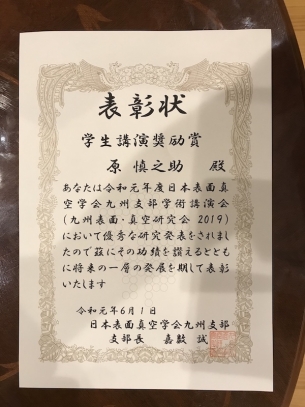 表彰状
学生講演奨励賞
原 慎之助 殿
あなたは令和元年度日本表面真
空学会九州支部学術講演会
(九州表面・真空研究会 2019)
において優秀な研究発表をされまし
たので茲にその功績を讃えるととも
に将来の一層の発展を期して表彰
いたします
令和元年6月1日
日本表面真空学会九州支部
支部長 嘉数 誠